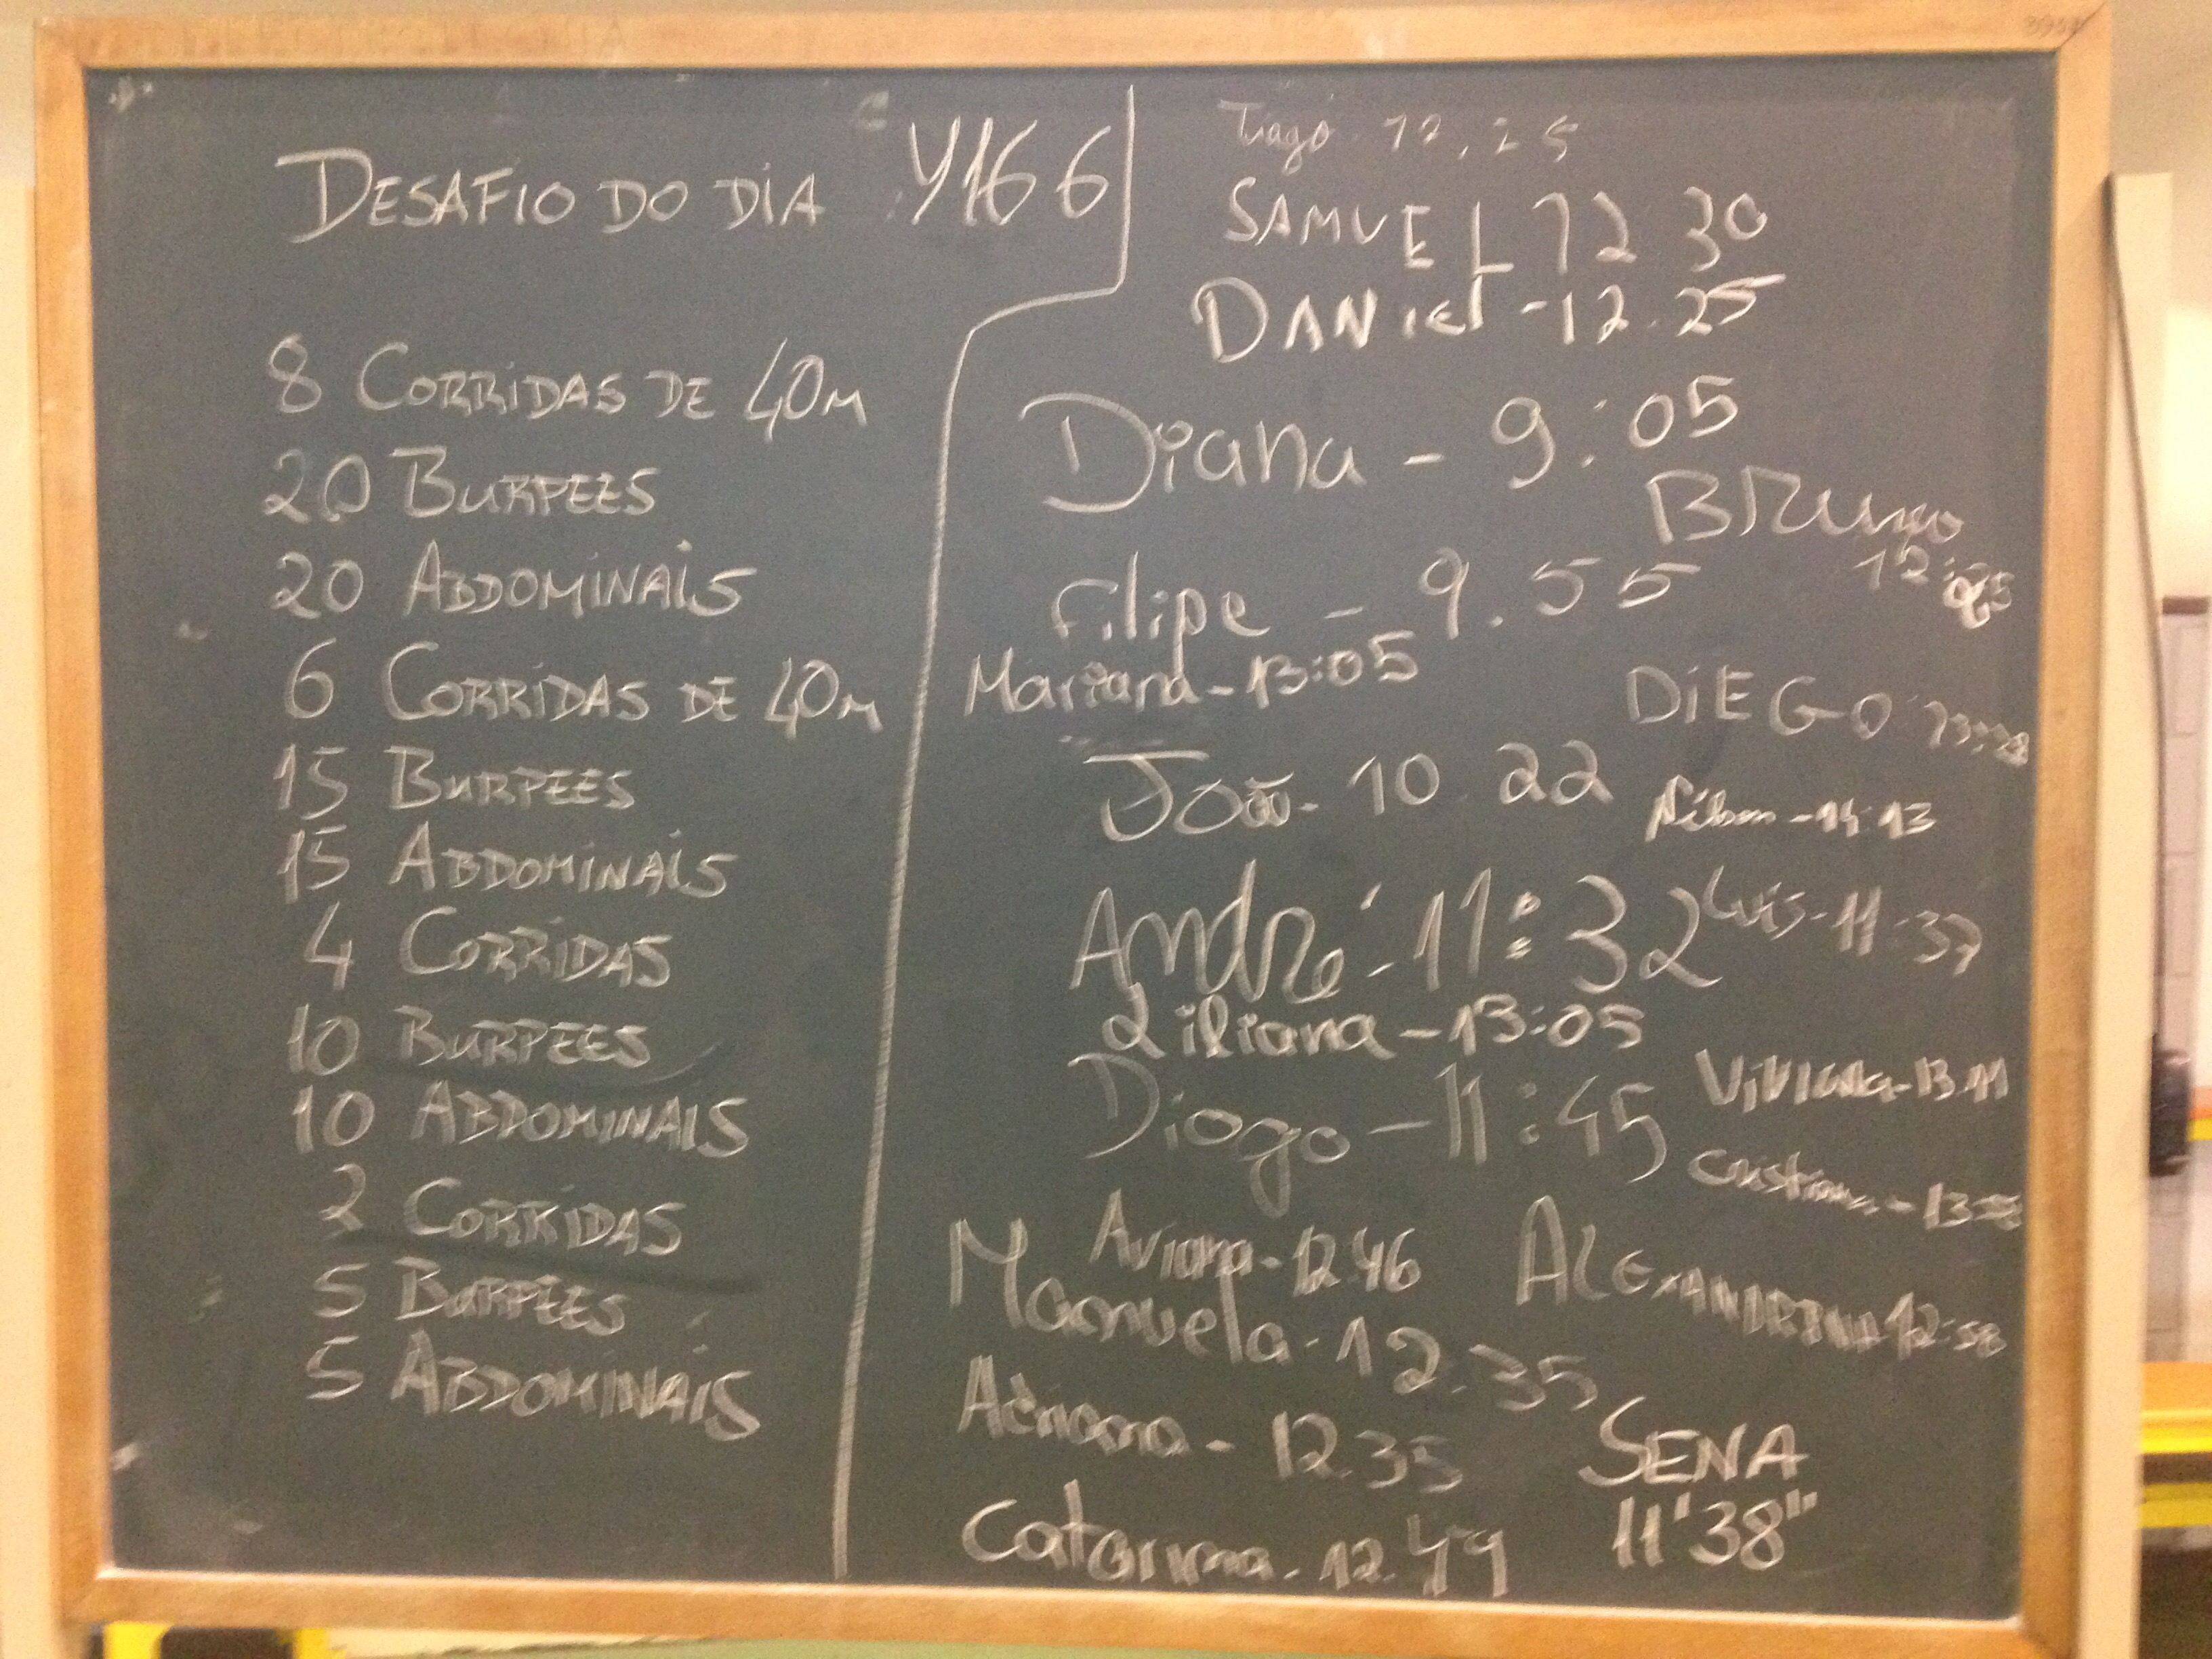 DESAFIO DO DIA Y166
8 CORRIDAS DE 40M
20 BURPEES
20 ABDOMINAIS
6 CORRIDAS DE 40M
15 BURPEES
15 ABDOMINAIS
4 CORRIDAS
10 BURPEES
10 ABDOMINAIS
2 CORRIDAS
5 BURPEES
5 ABDOMINAIS
Tiago 12,25
SAMUEL 12 30
DANIEL - 12.25
Diana - 9:05
Bruno
Filipe - 9.55
Mariana - 13:05
DiEGO
João - 10 22
André - 11:32
Luís - 11:37
Liliana - 13:05
Diogo - 11:45
Viviana - 13.11
Cristiana -
Aviana - 12.46
ALEXANDRINA 12:58
Manuela - 12.35
Adriana - 12.35
SENA
11'38"
Catarina - 12.49